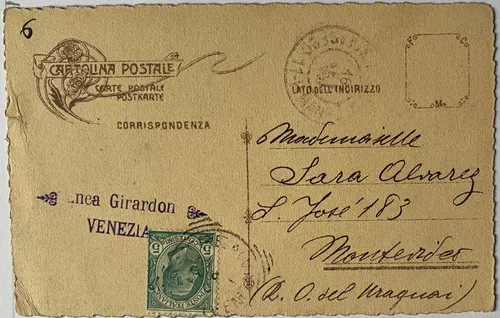 6
CARTOLINA POSTALE
CARTE POSTALE
POSTKARTE
CORRISPONDENZA
LATO DELL'INDIRIZZO
M.
Mademoiselle
Sara Alvarez
S. José 183
Montevideo
(R. O. del Uraguai)
nea Girardon
VENEZIA
POSTE ITALIANE
5
5